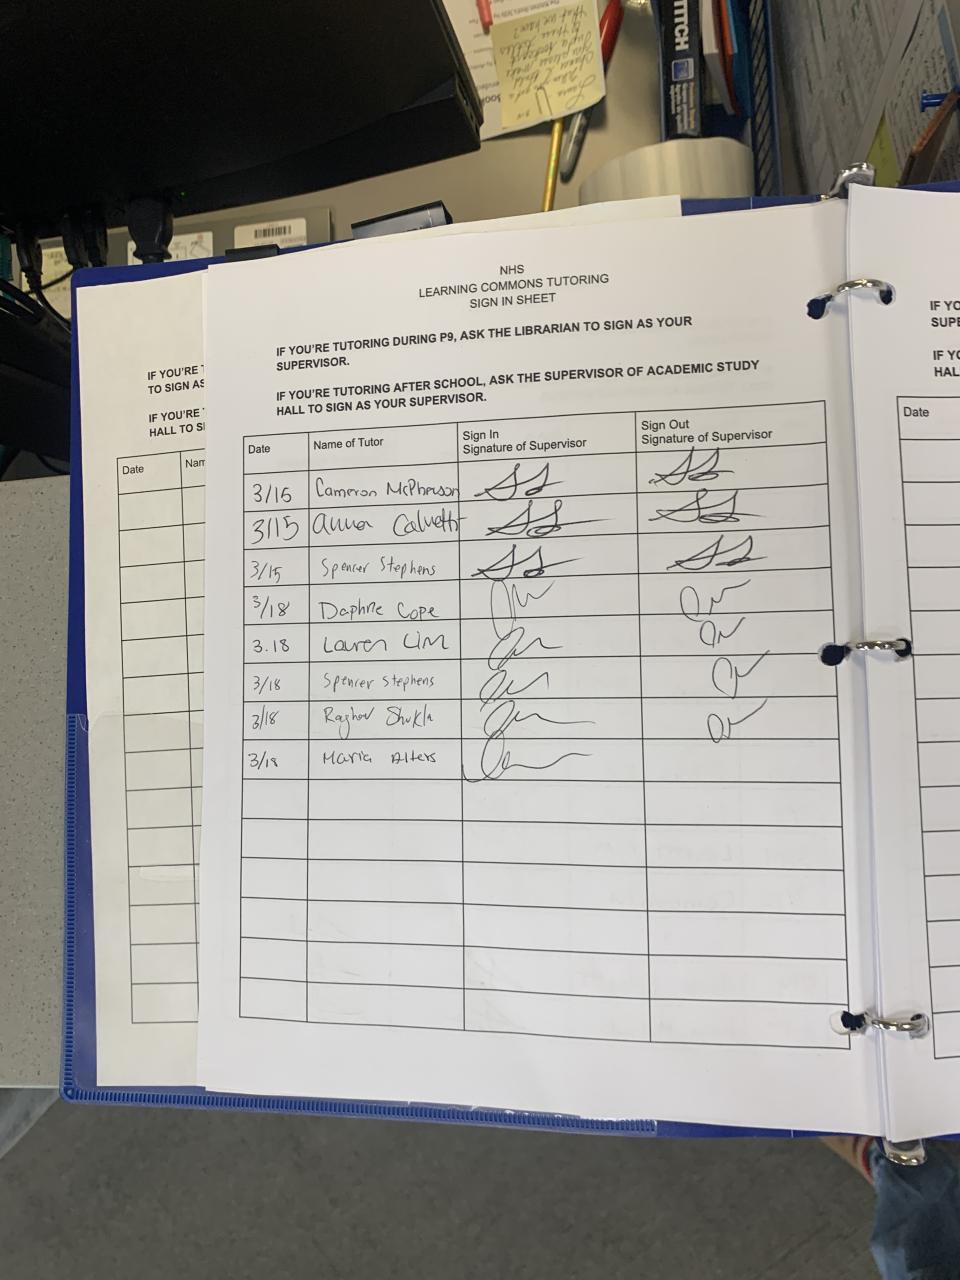 STITCH
NHS
LEARNING COMMONS TUTORING
SIGN IN SHEET
IF YOU'RE TUTORING DURING P9, ASK THE LIBRARIAN TO SIGN AS YOUR
SUPERVISOR.
IF YOU'RE TUTORING AFTER SCHOOL, ASK THE SUPERVISOR OF ACADEMIC STUDY
HALL TO SIGN AS YOUR SUPERVISOR.
Date Name of Tutor Sign In Signature of Supervisor Sign Out Signature of Supervisor
3/15 Cameron McPherson
3/15 anna Calvetti
3/15 Spencer Stephens
3/18 Daphne Cope
3.18 Lauren Lim
3/18 Spencer Stephens
3/18 Raghav Shukla
3/18 Maria Alters
IF YOU'RE
TO SIGN AS
IF YOU'RE
HALL TO SI
Date Nam
IF YO
SUPE
IF YO
HAL
Date